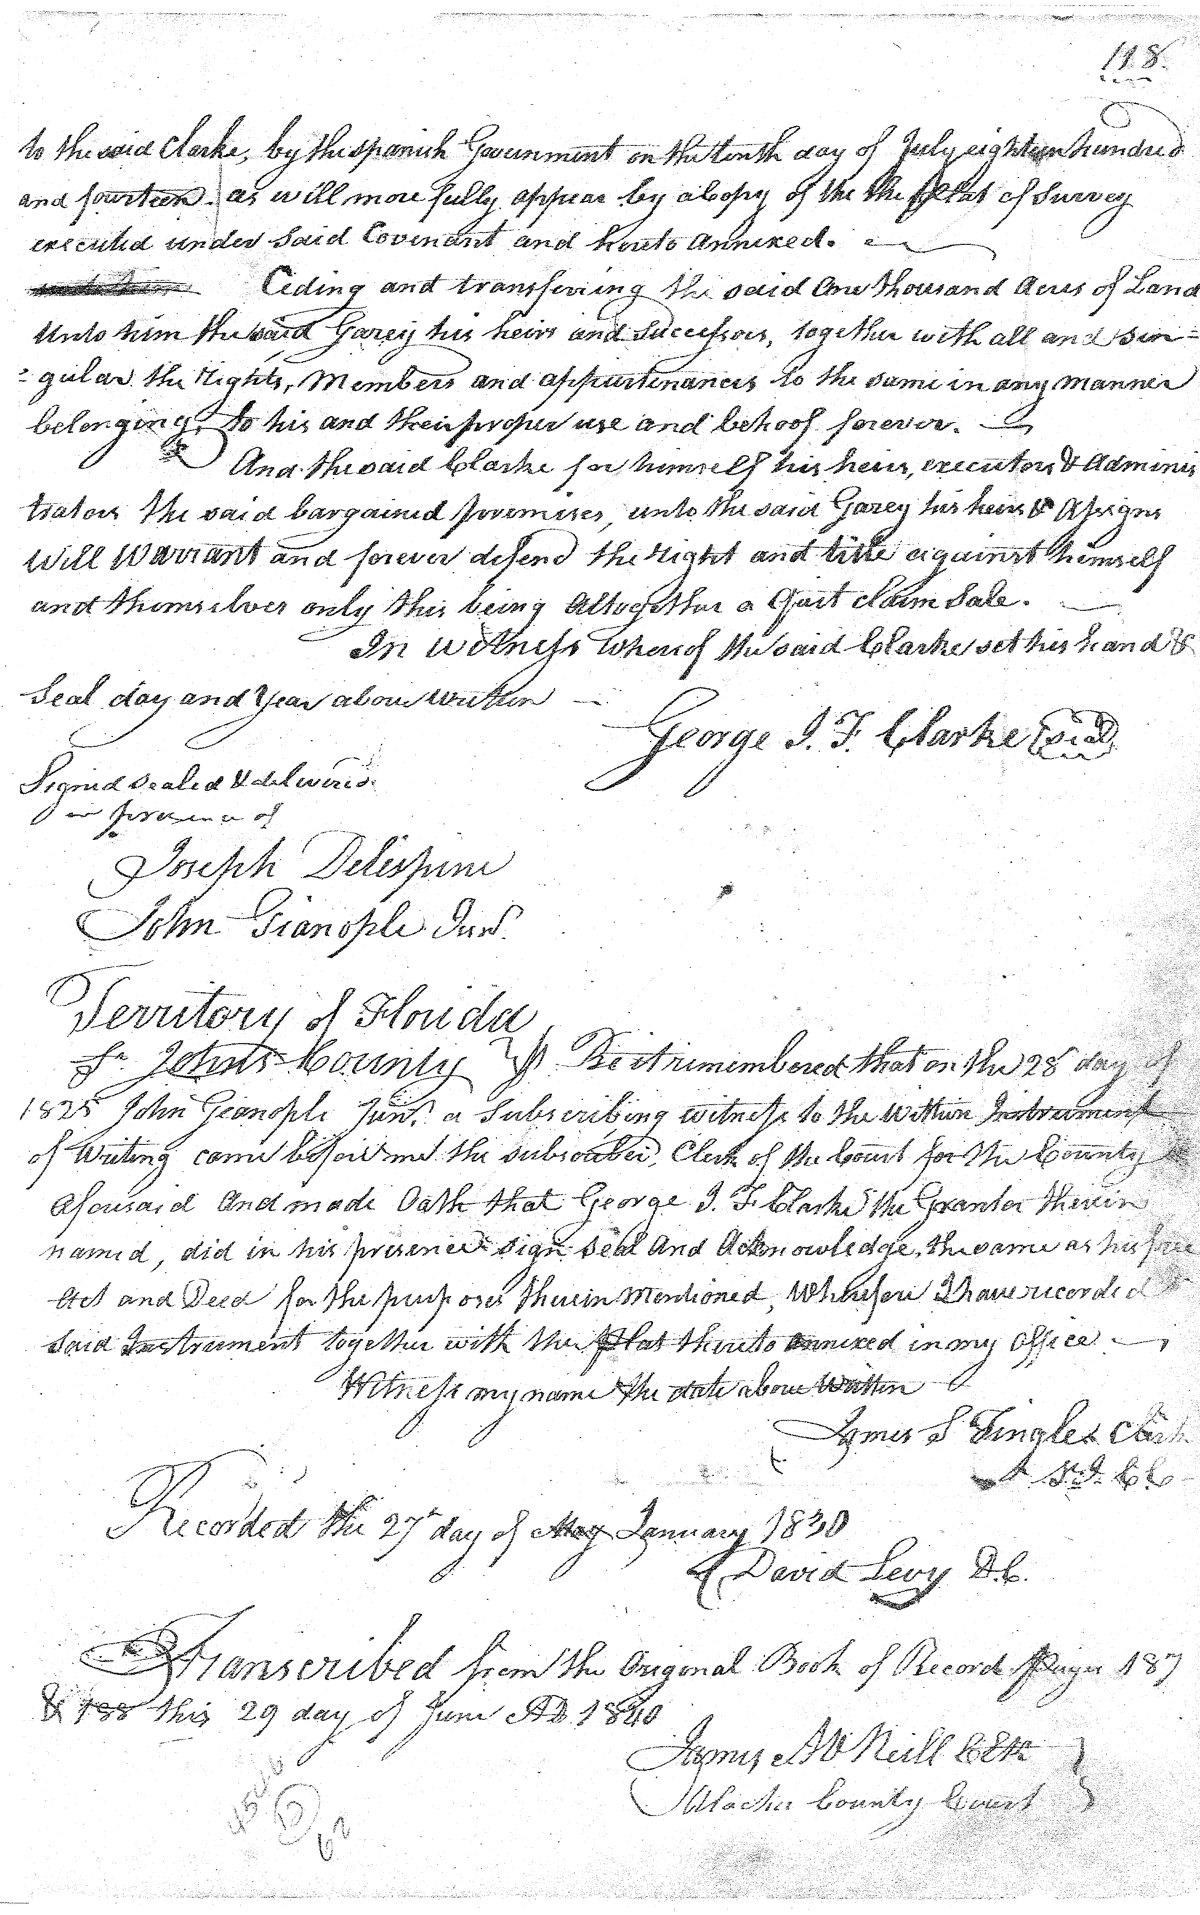 118.
to the said Clarke, by the spanish Government on the tenth day of July eighteen hundred
and fourteen. as will more fully appear by a Copy of the the Plat of Survey
executed under said Covenant and hereto annexed.
Ceding and transfering the said One thousand Acres of Land
Unto him the said Garey his heirs and Successors, together with all and sin=
=gular the rights, Members and appurtenances to the same in any manner
belonging, to his and their proper use and behoof forever.
And the said Clarke for himself his heirs, executors & Adminis
trators the said bargained premises, unto the said Garey his heirs & Assigns
Will Warrant and forever defend the right and title against himself
and themselves only this being Altogether a Quit claim Sale.
In witness whereof the said Clarke set his hand &
Seal day and Year above written
George J. F. Clarke Seal
Signed sealed & delivered
in presence of
Joseph Delespine
John Gianople Junr.
Territory of Florida
St. Johns County } ss. Be it remembered that on the 28 day of
1825 John Gianople Junr. a Subscribing witness to the within Instrument
of Writing came before me the subscriber, Clerk of the Court for the County
aforesaid And made Oath that George J. F. Clarke the Grantor therein
named, did in his presence sign seal And Acknowledge, the same as his free
Act and Deed for the purposes therein Mentioned, Wherefore I have recorded
said Instrument together with the Plat thereto annexed in my office
Witness my name the date above Written
James S Tingles Clerk
St. J. C. C.
Recorded the 27th day of May January 1830
David Levy D.C.
Transcribed from the Original Book of Record Pages 187
& 188 this 29 day of June AD 1840
James A O Neill Clk
Alachu County Court